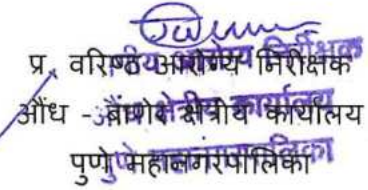 प्र. वरिष्ठ आरोग्य निरीक्षक
औंध - बाणेर क्षेत्रीय कार्यालय
पुणे महानगरपालिका